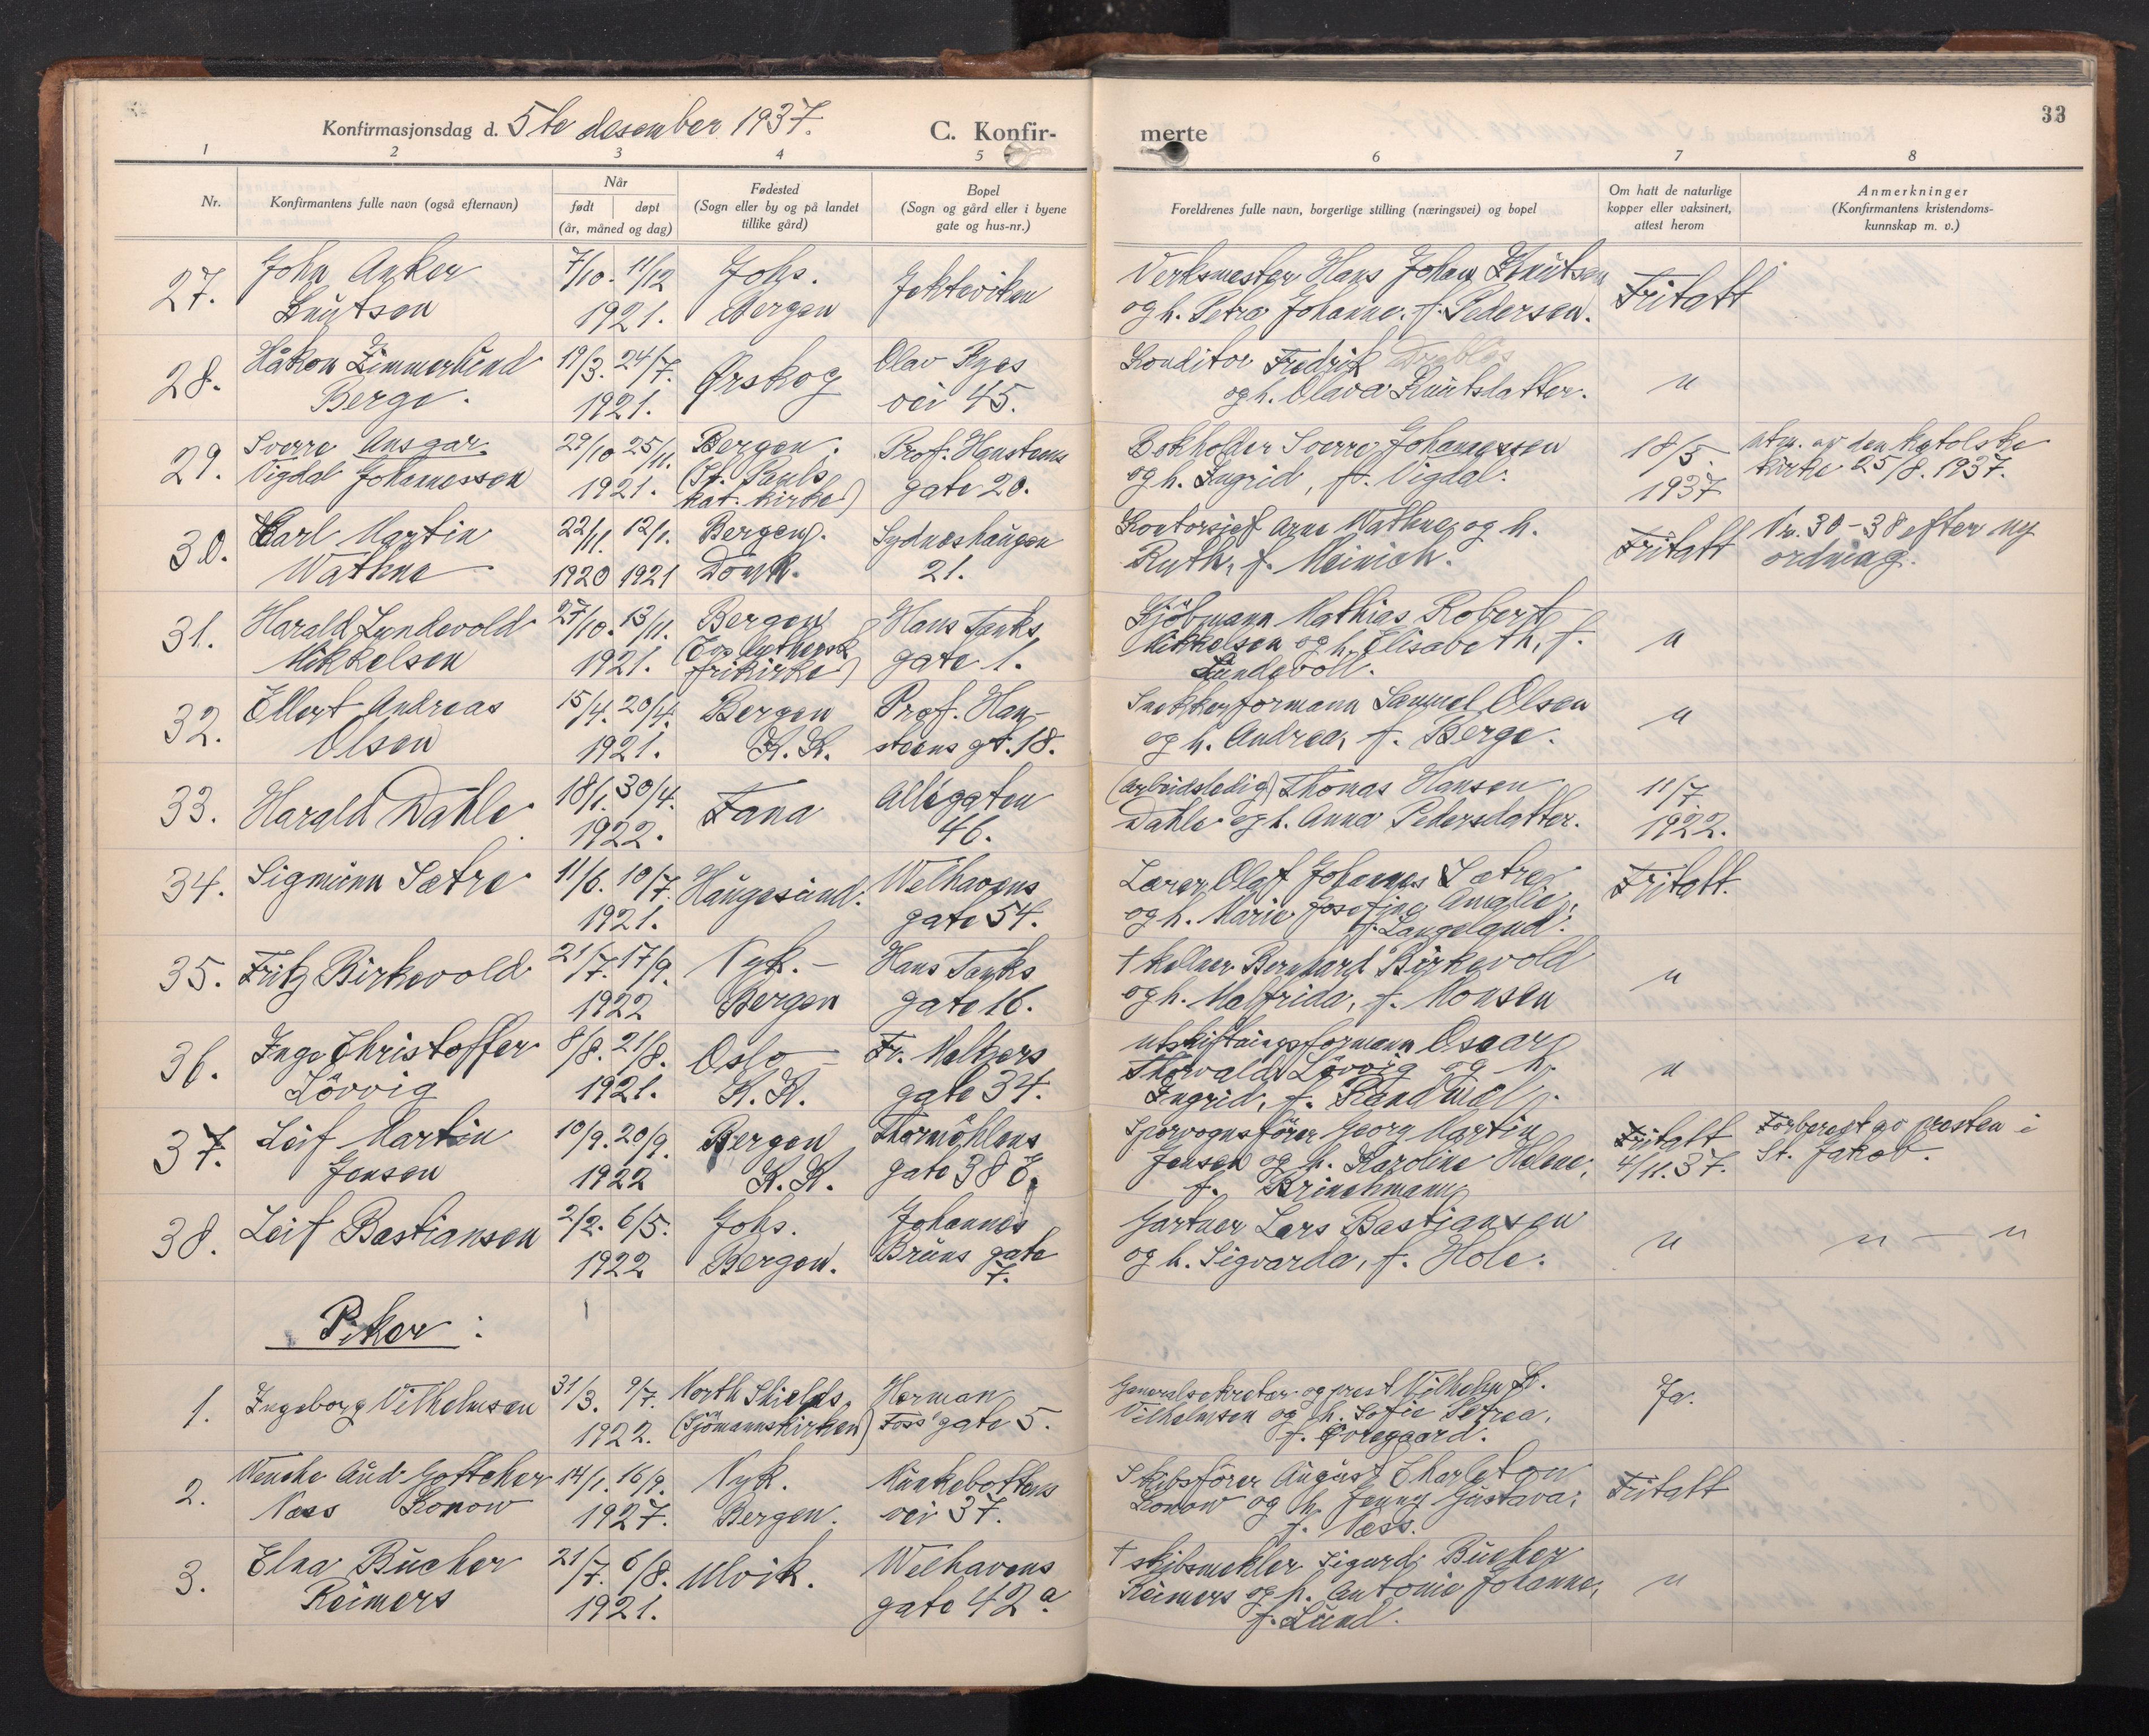 Konfirmasjonsdag d. 5te desember 1937. C. Konfir-
merte
33
1 2 3 4 5
6 7 8
Nr.
Konfirmantens fulle navn (også efternavn)
Når
født døpt
(år, måned og dag)
Fødested
(Sogn eller by og på landet
tillike gård)
Bopel
(Sogn og gård eller i byene
gate og hus-nr.)
Foreldrenes fulle navn, borgerlige stilling (næringsvei) og bopel
Om hatt de naturlige
kopper eller vaksinert,
attest herom
Anmerkninger
(Konfirmantens kristendoms-
kunnskap m. v.)
27. John Anker 7/10. 11/12 Johs. Jekteviken Verksmester Hans Johan Knutsen Fritatt
Knutsen 1921. Bergen og h. Petra Johanne, f. Pedersen.
28. Håkon Zimmerlund 19/3. 24/7. Ørskog Olav Ryes Konditor Fredrik "
Berge. 1921. vei 45. og h. Olava Knutsdatter.
29. Sverre Ansgar 29/10 25/11. Bergen. Prof. Hansteens Bokholder Sverre Johannessen 18/5. utm. av den katolske
Vigdal Johannessen 1921. (St. Pauls gate 20. og h. Ingrid, f. Vigdal. 1937 kirke 25/8. 1937.
kat. kirke)
30. Carl Martin 22/11. 12/1. Bergen. Sydneshaugen Kontorsjef Arne Wathne og h. Fritatt Nr. 30-38 efter ny
Wathne 1920 1921 Domk. 21. Ruth, f. Meinich. ordning.
31. Harald Lyndevold 27/10. 13/11. Bergen Hans Tanks Kjöbmann Mathias Robert "
Mikkelsen 1921. (Ev. luthersk gate 1. Mikkelsen og h. Elisabeth, f.
frikirke) Lundevoll.
32. Ellert Andreas 15/4. 20/4. Bergen Prof. Han- Snekkerformann Samuel Olsen "
Olsen 1921. K. K. steens gt. 18. og h. Andrea, f. Berge.
33. Harald Dahle 18/1. 30/4. Fana Allégaten (arbeidsledig) Thomas Hansen 11/7.
1922. 46. Dahle og h. Anna Pedersdatter. 1922.
34. Sigmunn Sætre 11/6. 10/7. Haugesund. Welhavens Lærer Olaf Johannes Sætre Fritatt.
1921. gate 54. og h. Marie Josefine Amalie,
f. Langeland.
35. Fritz Birkevold 21/7. 17/9. Nyk. - Hans Tanks † kellner Bernhard Birkevold "
1922 Bergen gate 16. og h. Malfrida, f. Monsen
36. Inge Christoffer 8/8. 21/8. Oslo Fr. Meltzers utskiftningsformann Oscar "
Lövvig 1921. K. K. gate 34. Thorvald Lövvig og h.
Ingrid, f.
37. Leif Martin 10/9. 20/9. Bergen Thormöhlens Sporvognsförer Georg Martin Fritatt Forberedt av presten i
Jensen 1922 K. K. gate 38 Jensen og h. Karoline Helene, 4/11. 37. St. Jakob.
f. Brinchmann
38. Leif Bastiansen 2/2. 6/5. Johs. Johannes Gartner Lars Bastiansen " " - "
1922 Bergen. Bruns gate og h. Sigvarda, f. Hole.
7.
Piker :
1. Ingeborg Vilhelmsen 31/3. 9/7. North Shields. Herman Generalsekretær og prest Vilhelm K. Ja.
1922. (Sjömannskirken) Foss' gate 5. Vilhelmsen og h. Sofie Petrea,
f. Ovregaard.
2. Wenche Aud Gottcher 14/1. 16/9. Nyk. Munkebotten Skibsförer August Charleton Fritatt
Næss Konow 1927. Bergen. vei 37. Konow og h. Jenny Gustava,
f. Næss.
3. Elna Bücher 21/7. 6/8. Ulvik. Welhavens † skibsmekler Sigurd Bücher "
Reimers 1921. gate 42 a. Reimers og h. Antonie Johanne,
f. Lund.